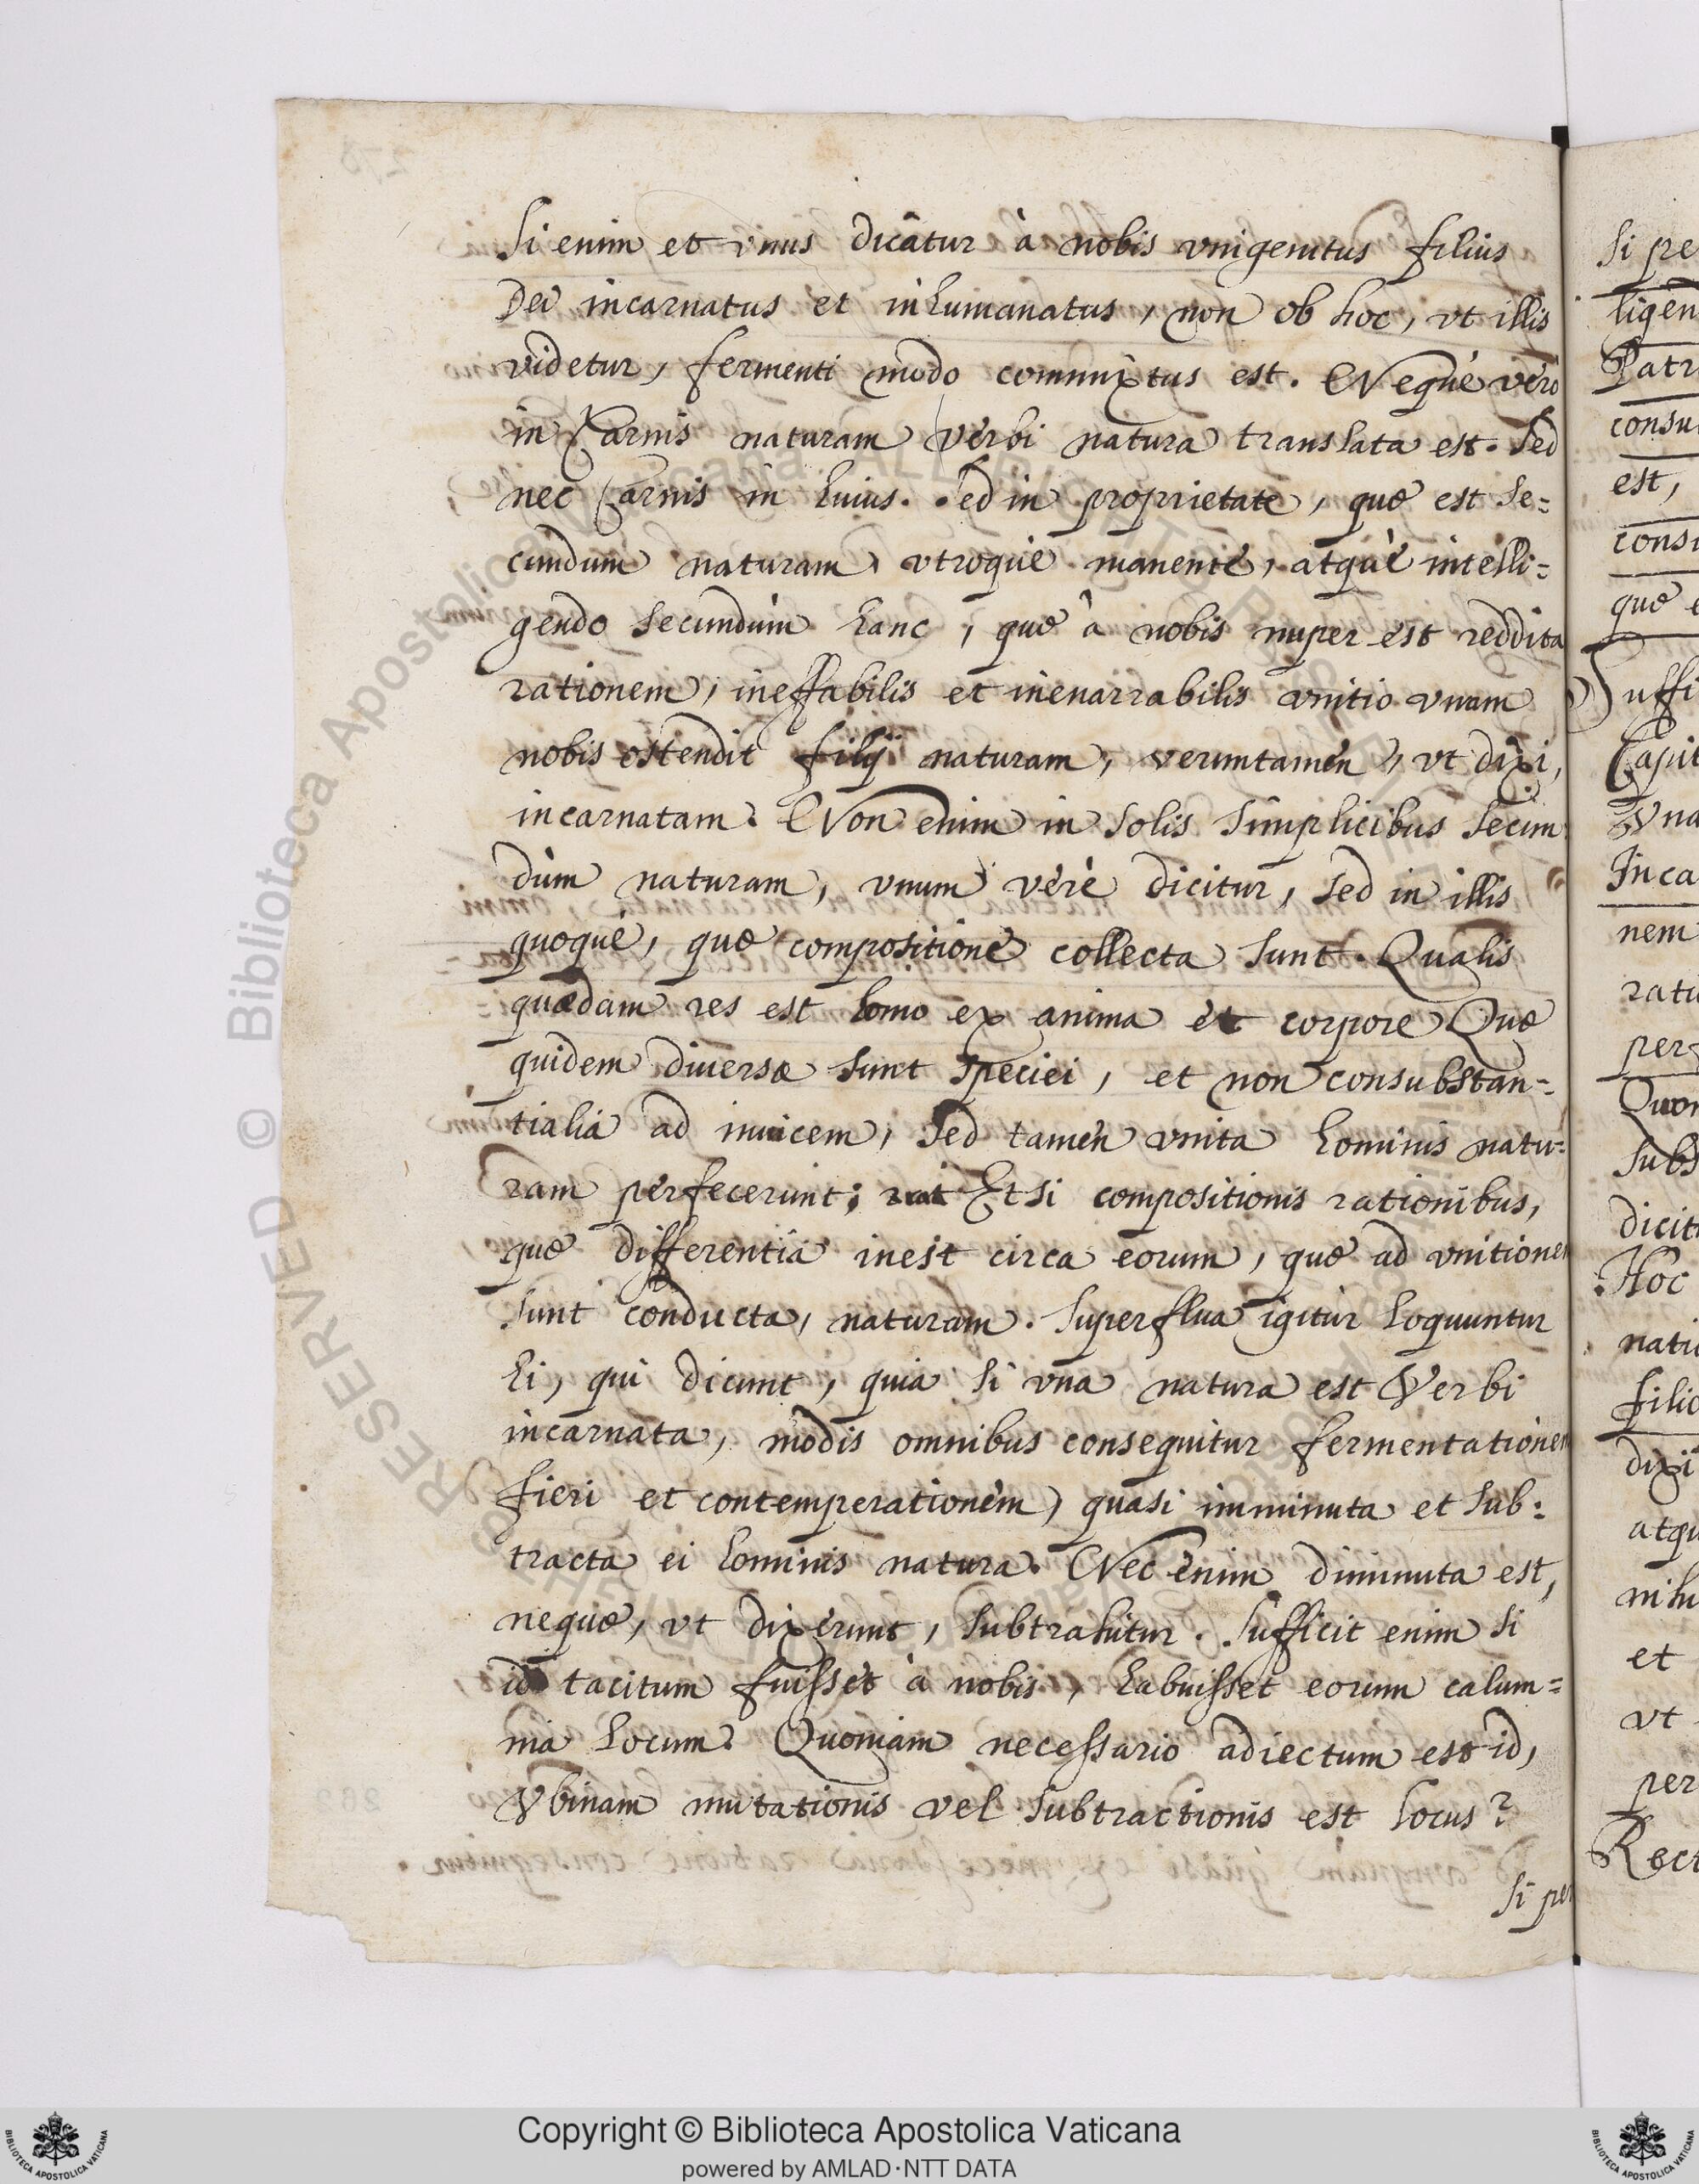 Si enim et vnus dicâtur à nobis vnigenitus filius
Dei incarnatus et inhumanatus, non ob hoc, vt illis
videtur, fermenti modo commixtus est. Nequè verò
in Carnis naturam verbi natura translata est. Sed
nec Carnis in huius. Sed in proprietate, quæ est se=
cundum naturam vtroquè manente, atquè intelli=
gendo secundùm hanc, quæ à nobis nuper est reddita
rationem, ineffabilis et inenarrabilis vnitio vnam
nobis ostendit filij naturam, verumtamen, vt dixi,
incarnatam. Non enim in solis simplicibus secun
dùm naturam, vnum verè dicitur, sed in illis
quoquè, quæ compositione collecta sunt. Qualis
quædam res est homo ex anima et corpore Quæ
quidem diuersæ sunt speciei, et non consubstan=
tialia ad inuicem, sed tamen vnita hominis natu=
ram perfecerunt; Etsi compositionis rationibus,
quæ differentia inest circa eorum, quæ ad vnitionem
sunt conducta, naturam. Superflua igitur loquuntur
hi, qui dicunt, quia si vna natura est Verbi
incarnata, modis omnibus consequitur fermentationem
fieri et contemperationem, quasi imminuta et sub=
tracta ei hominis natura. Nec enim diminuta est,
nequæ, vt dixerunt, subtrahitur. Sufficit enim si
id tacitum fuisset à nobis, habuisset eorum calum=
nia locum. Quoniam necessario adiectum est id,
Vbinam mutationis vel subtractionis est locus?
Si per
Si pe
ligen
Patr
consu
est,
consu
quæ e
Suffi
Capit
Vna
Inca
nem
ratu
per
Quon
subs
dicit
Hoc
natu
filio
dixi
atqu
nihi
et
vt
per
Rect
© Biblioteca Apostolica Vaticana
RESERVED
Copyright © Biblioteca Apostolica Vaticana
powered by AMLAD·NTT DATA
BIBLIOTECA APOSTOLICA VATICANA
BIBLIOTECA APOSTOLICA VATICANA